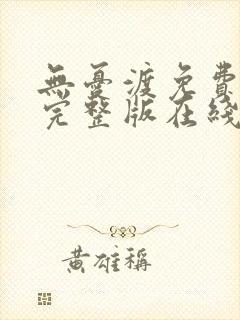 無憂渡免費
完整版在綫
黃雄稱